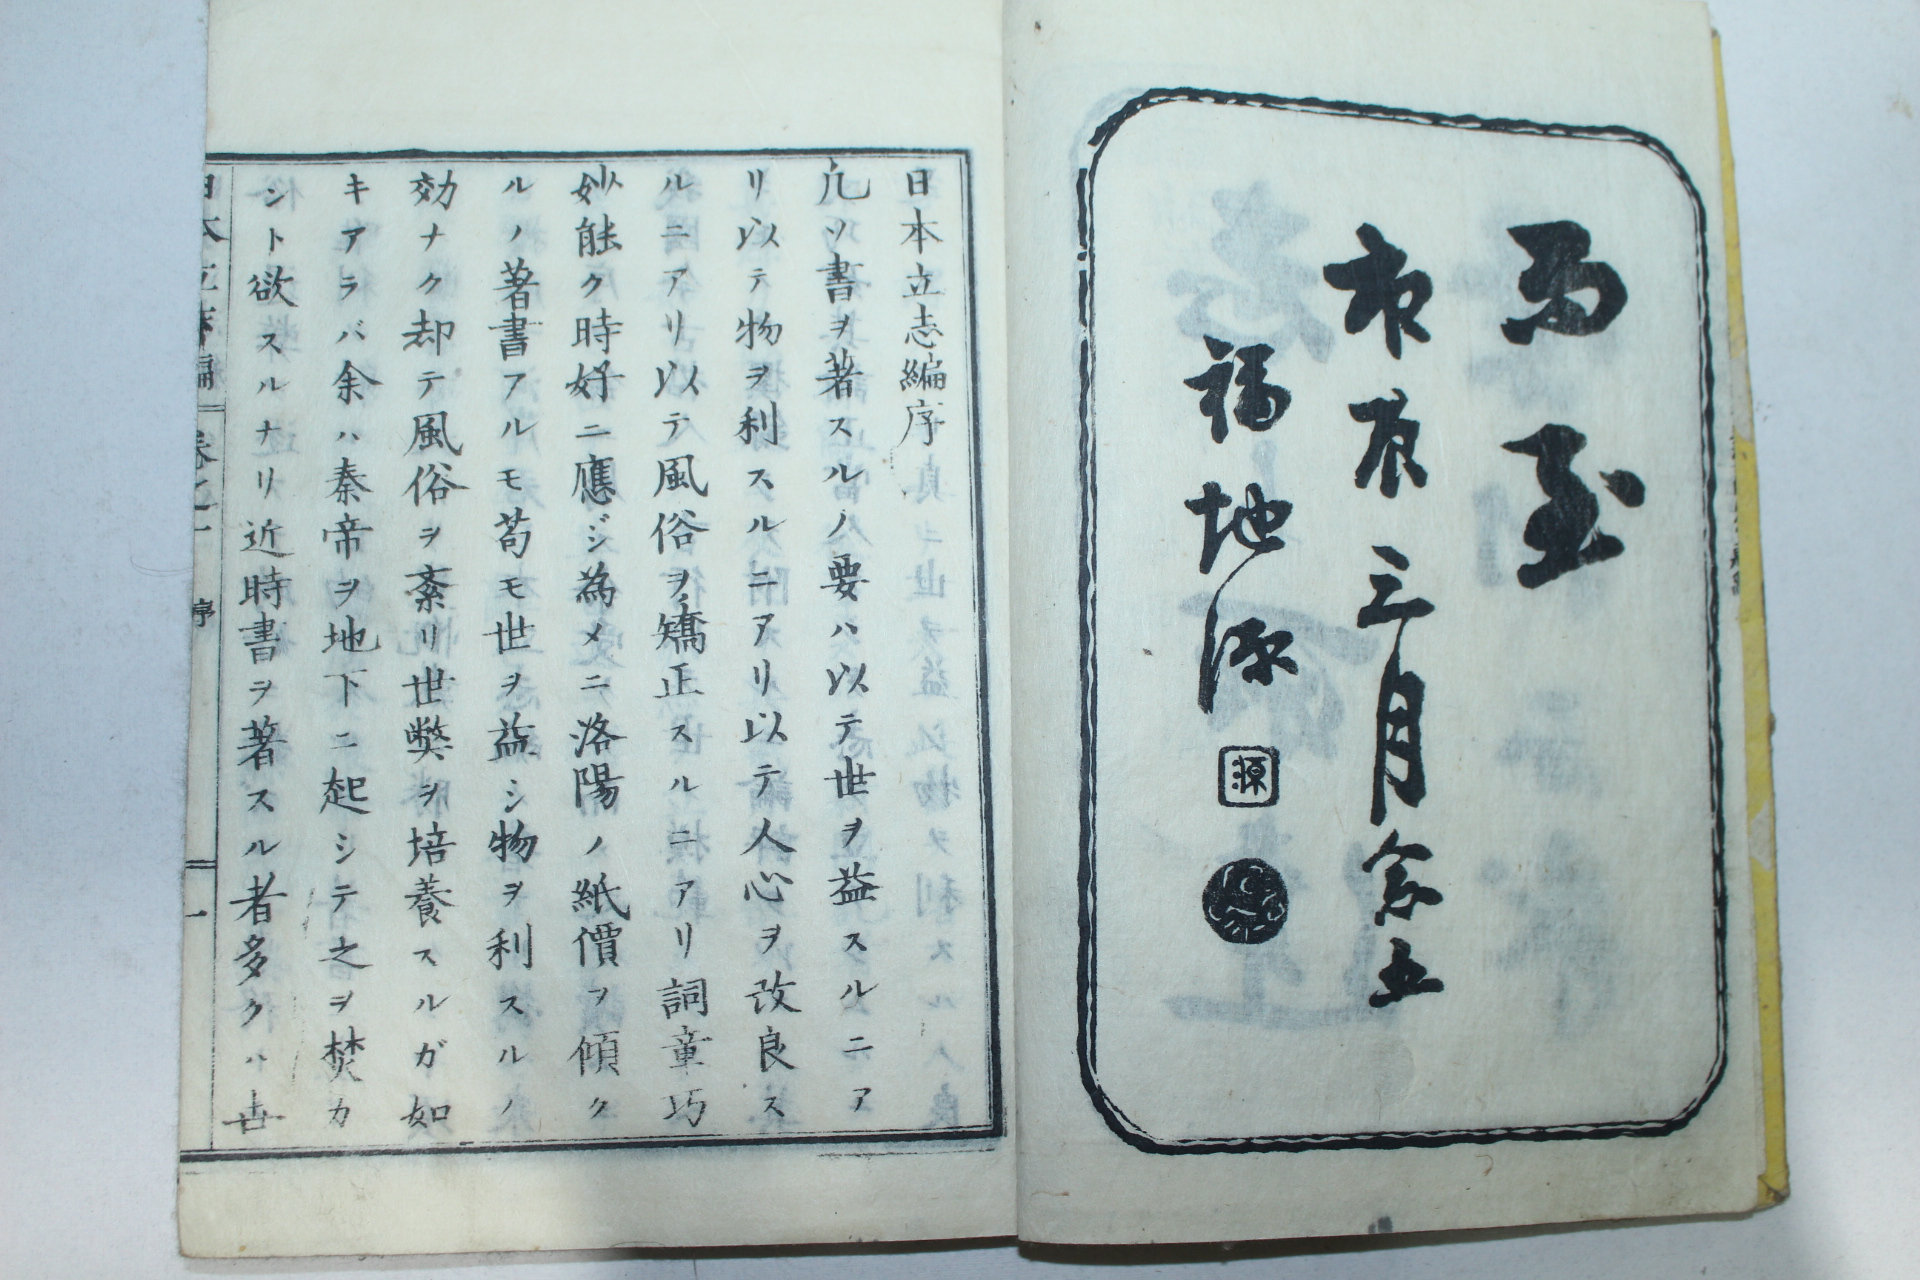 為玉
庚辰三月念五
福地源
源
日本立志編序
凡ソ書ヲ著スルノ要ハ以テ世ヲ益スルニア
リ以テ物ヲ利スルニアリ以テ人心ヲ改良ス
ルニアリ以テ風俗ヲ矯正スルニアリ詞章巧
妙能ク時好ニ應ジ為メニ洛陽ノ紙價ヲ傾ク
ルノ著書アルモ苟モ世ヲ益シ物ヲ利スルノ
効ナク却テ風俗ヲ紊リ世弊ヲ培養スルガ如
キアラバ余ハ秦帝ヲ地下ニ起シテ之ヲ焚カ
シト欲スルナリ近時書ヲ著スル者多クハ世
日本立志編 卷之一 序 一